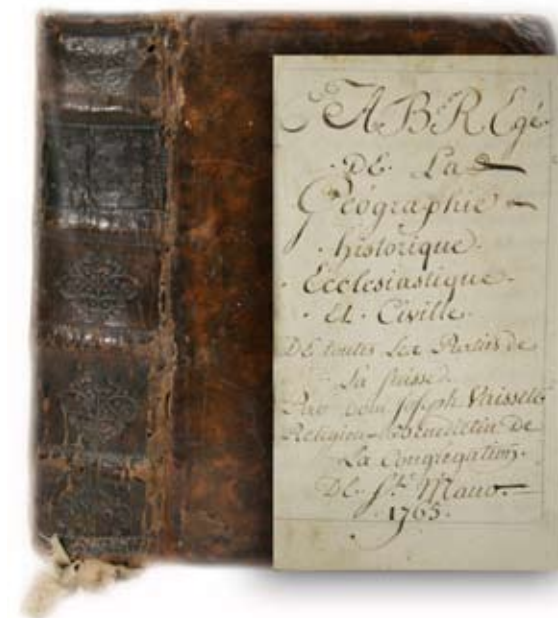 ABREgé
DE La
Géographie
historique
Ecclesiastique
Et Civille
DE toutes Les Parties de
La suisse
Par Dom Joseph Vaissete
Religieux Benedictin De
La Congregation
DE St Maur
1765